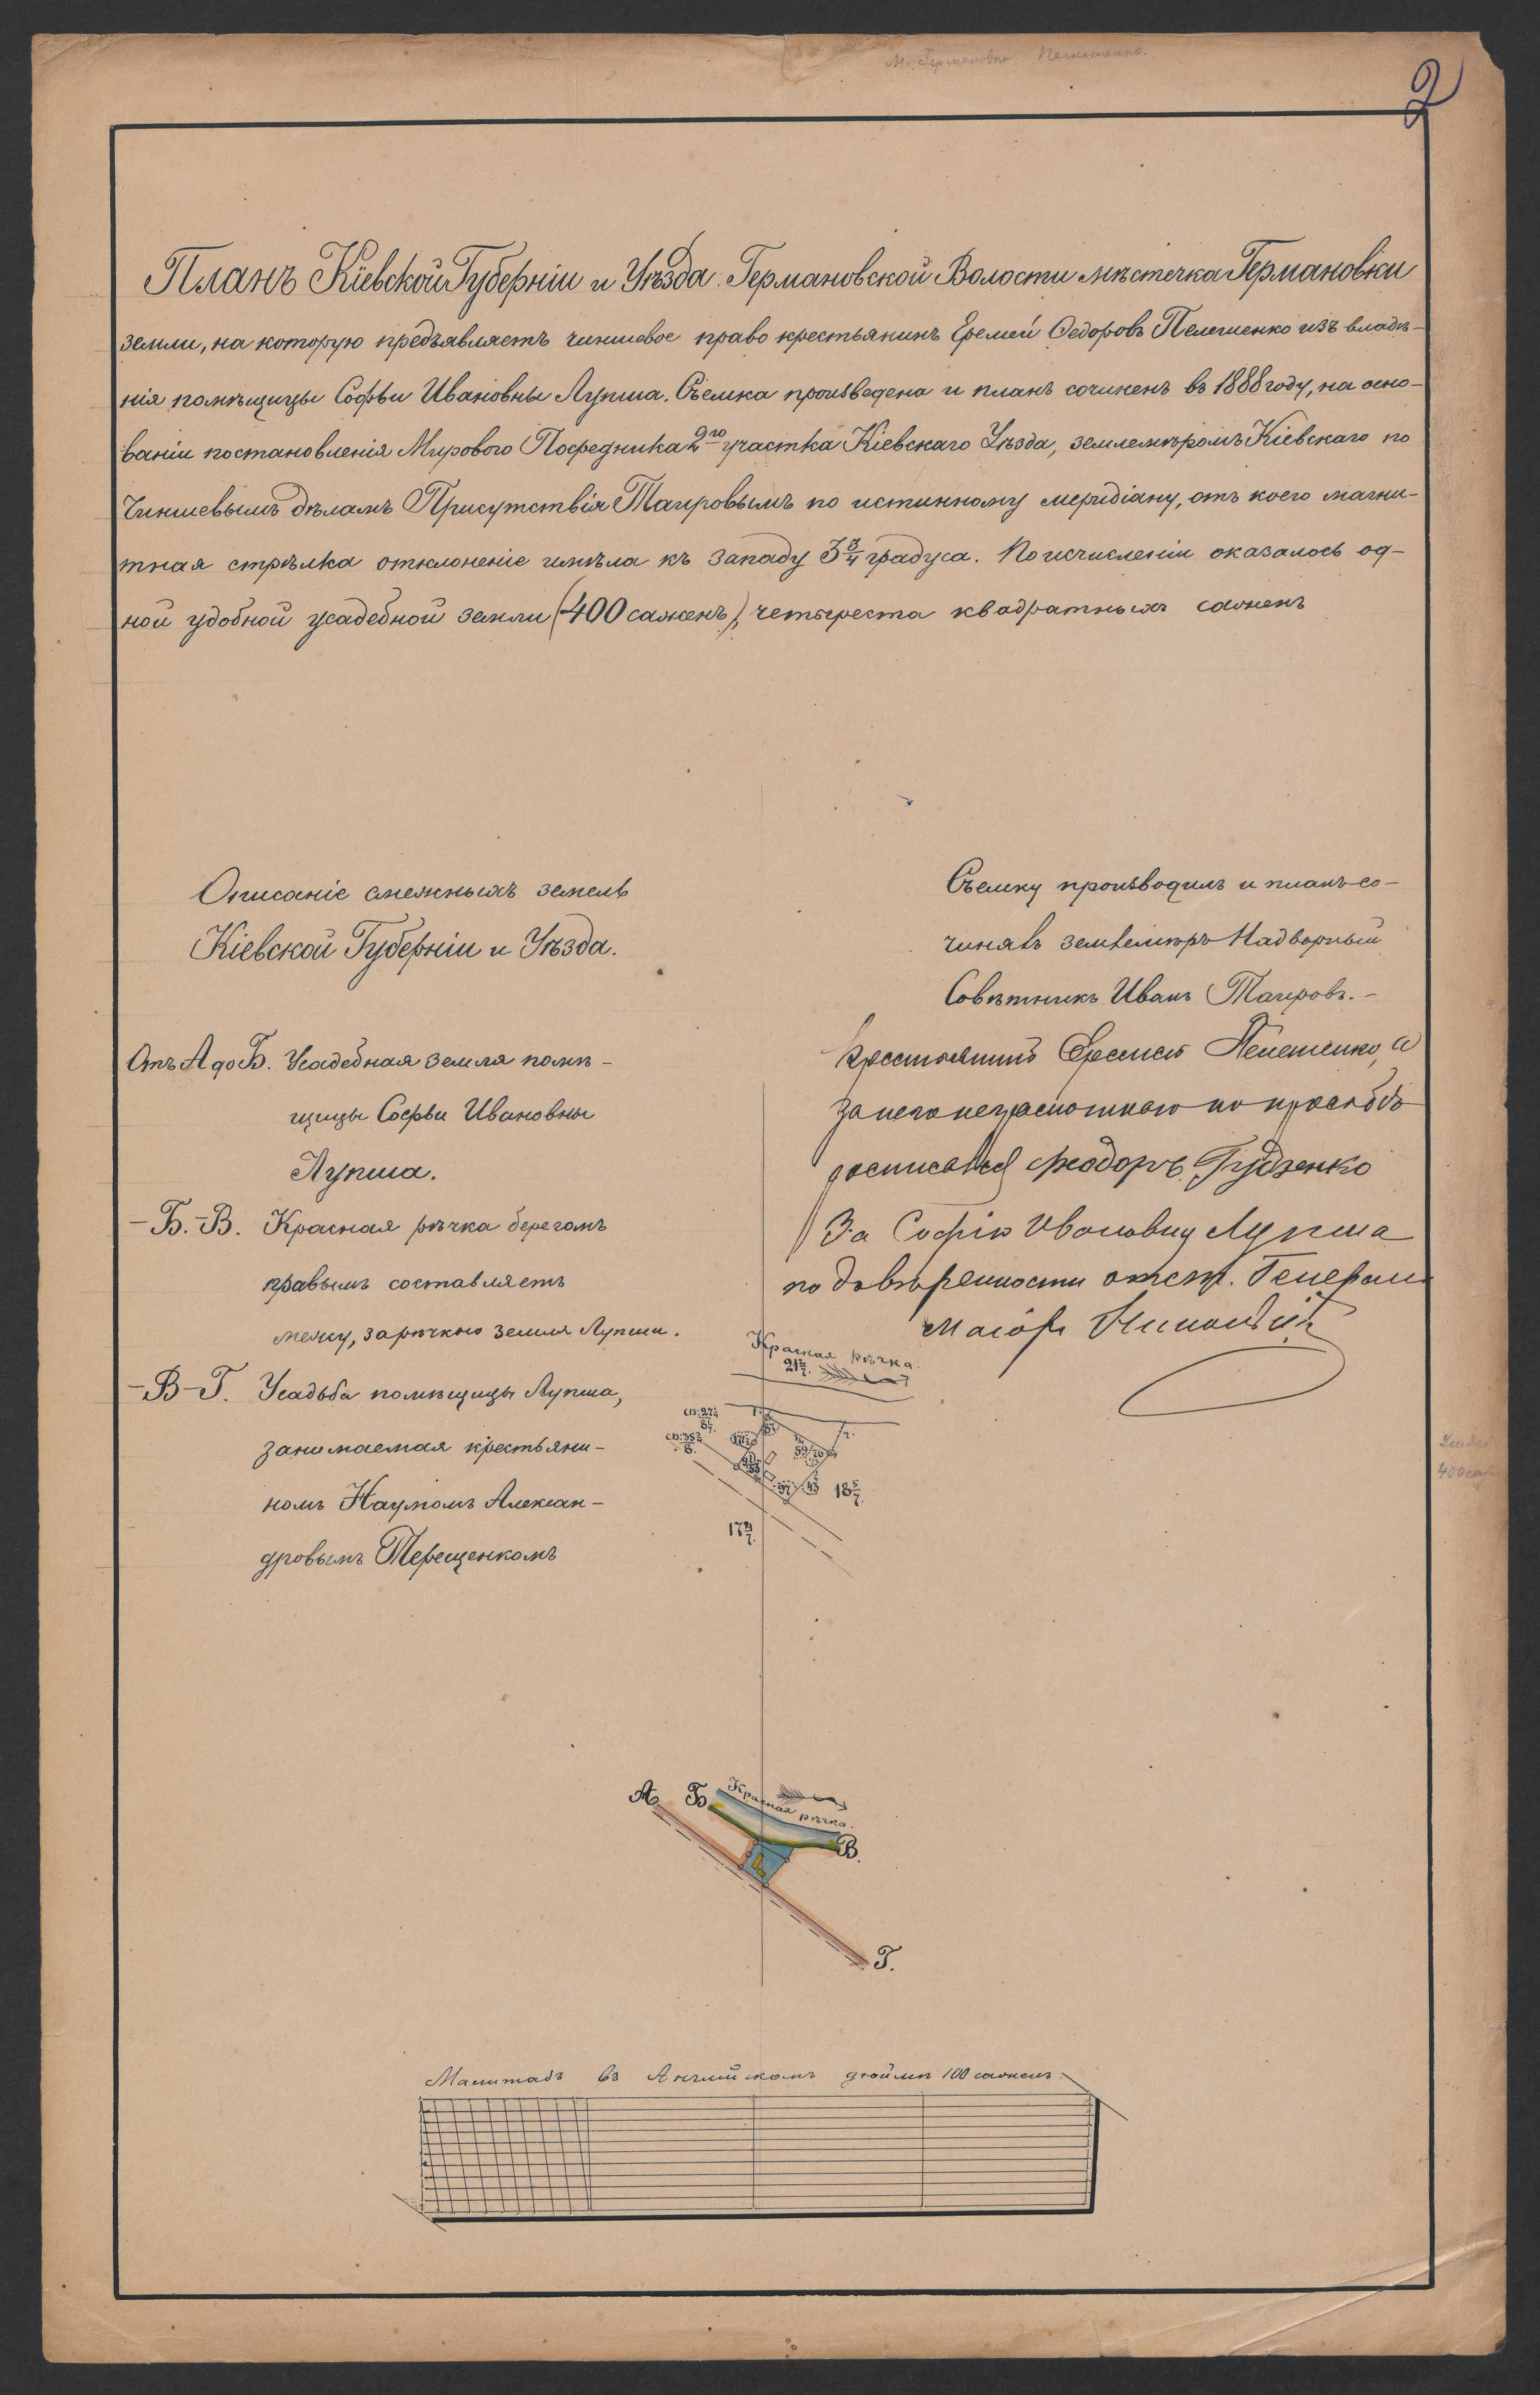 2
Планъ Кіевской Губерніи и Уѣзда Германовской Волости мѣстечка Германовки
земли, на которую предъявляетъ чиншевое право крестьянинъ Еремей Ѳедоровъ Пелешенко изъ владѣ-
нія помѣщицы Софьи Ивановны Лупша. Съемка произведена и планъ сочиненъ въ 1888 году, на осно-
ваніи постановленія Мирового Посредника 2го участка Кіевскаго Уѣзда, землемѣромъ Кіевскаго по
Чиншевымъ дѣламъ Присутствія Таировымъ по истинному меридіану, отъ коего магни-
тная стрѣлка отклоненіе имѣла къ западу 3 3/4 градуса. По исчисленіи оказалось од-
ной удобной усадебной земли (400 саженъ), четыреста квадратныхъ саженъ
Описаніе смежныхъ земель
Кіевской Губерніи и Уѣзда.
Отъ А до Б. Усадебная земля помѣ-
щицы Софьи Ивановны
Лупша.
– Б. – В. Красная рѣчка берегомъ
правымъ составляетъ
межу, за рѣчкою земля Лупши.
– В – Г. Усадьба помѣщицы Лупша,
занимаемая крестьяни-
номъ Наумомъ Алексан-
дровымъ Терещенкомъ
Съемку производилъ и планъ со-
чинялъ землемѣръ Надворный
Совѣтникъ Иванъ Таировъ. –
Крестьянинъ Еремей Пелешенко, а
за него неграмотнаго по просьбѣ
росписался Ѳеодоръ Гудзенко
За Софію Ивановну Лупша
по довѣренности отст. Генералъ
Маіоръ
Красная рѣчка.
18 5/7.
А Б Красная рѣчка.
В.
Г.
Масштабъ въ Англійскомъ дюймѣ 100 саженъ.